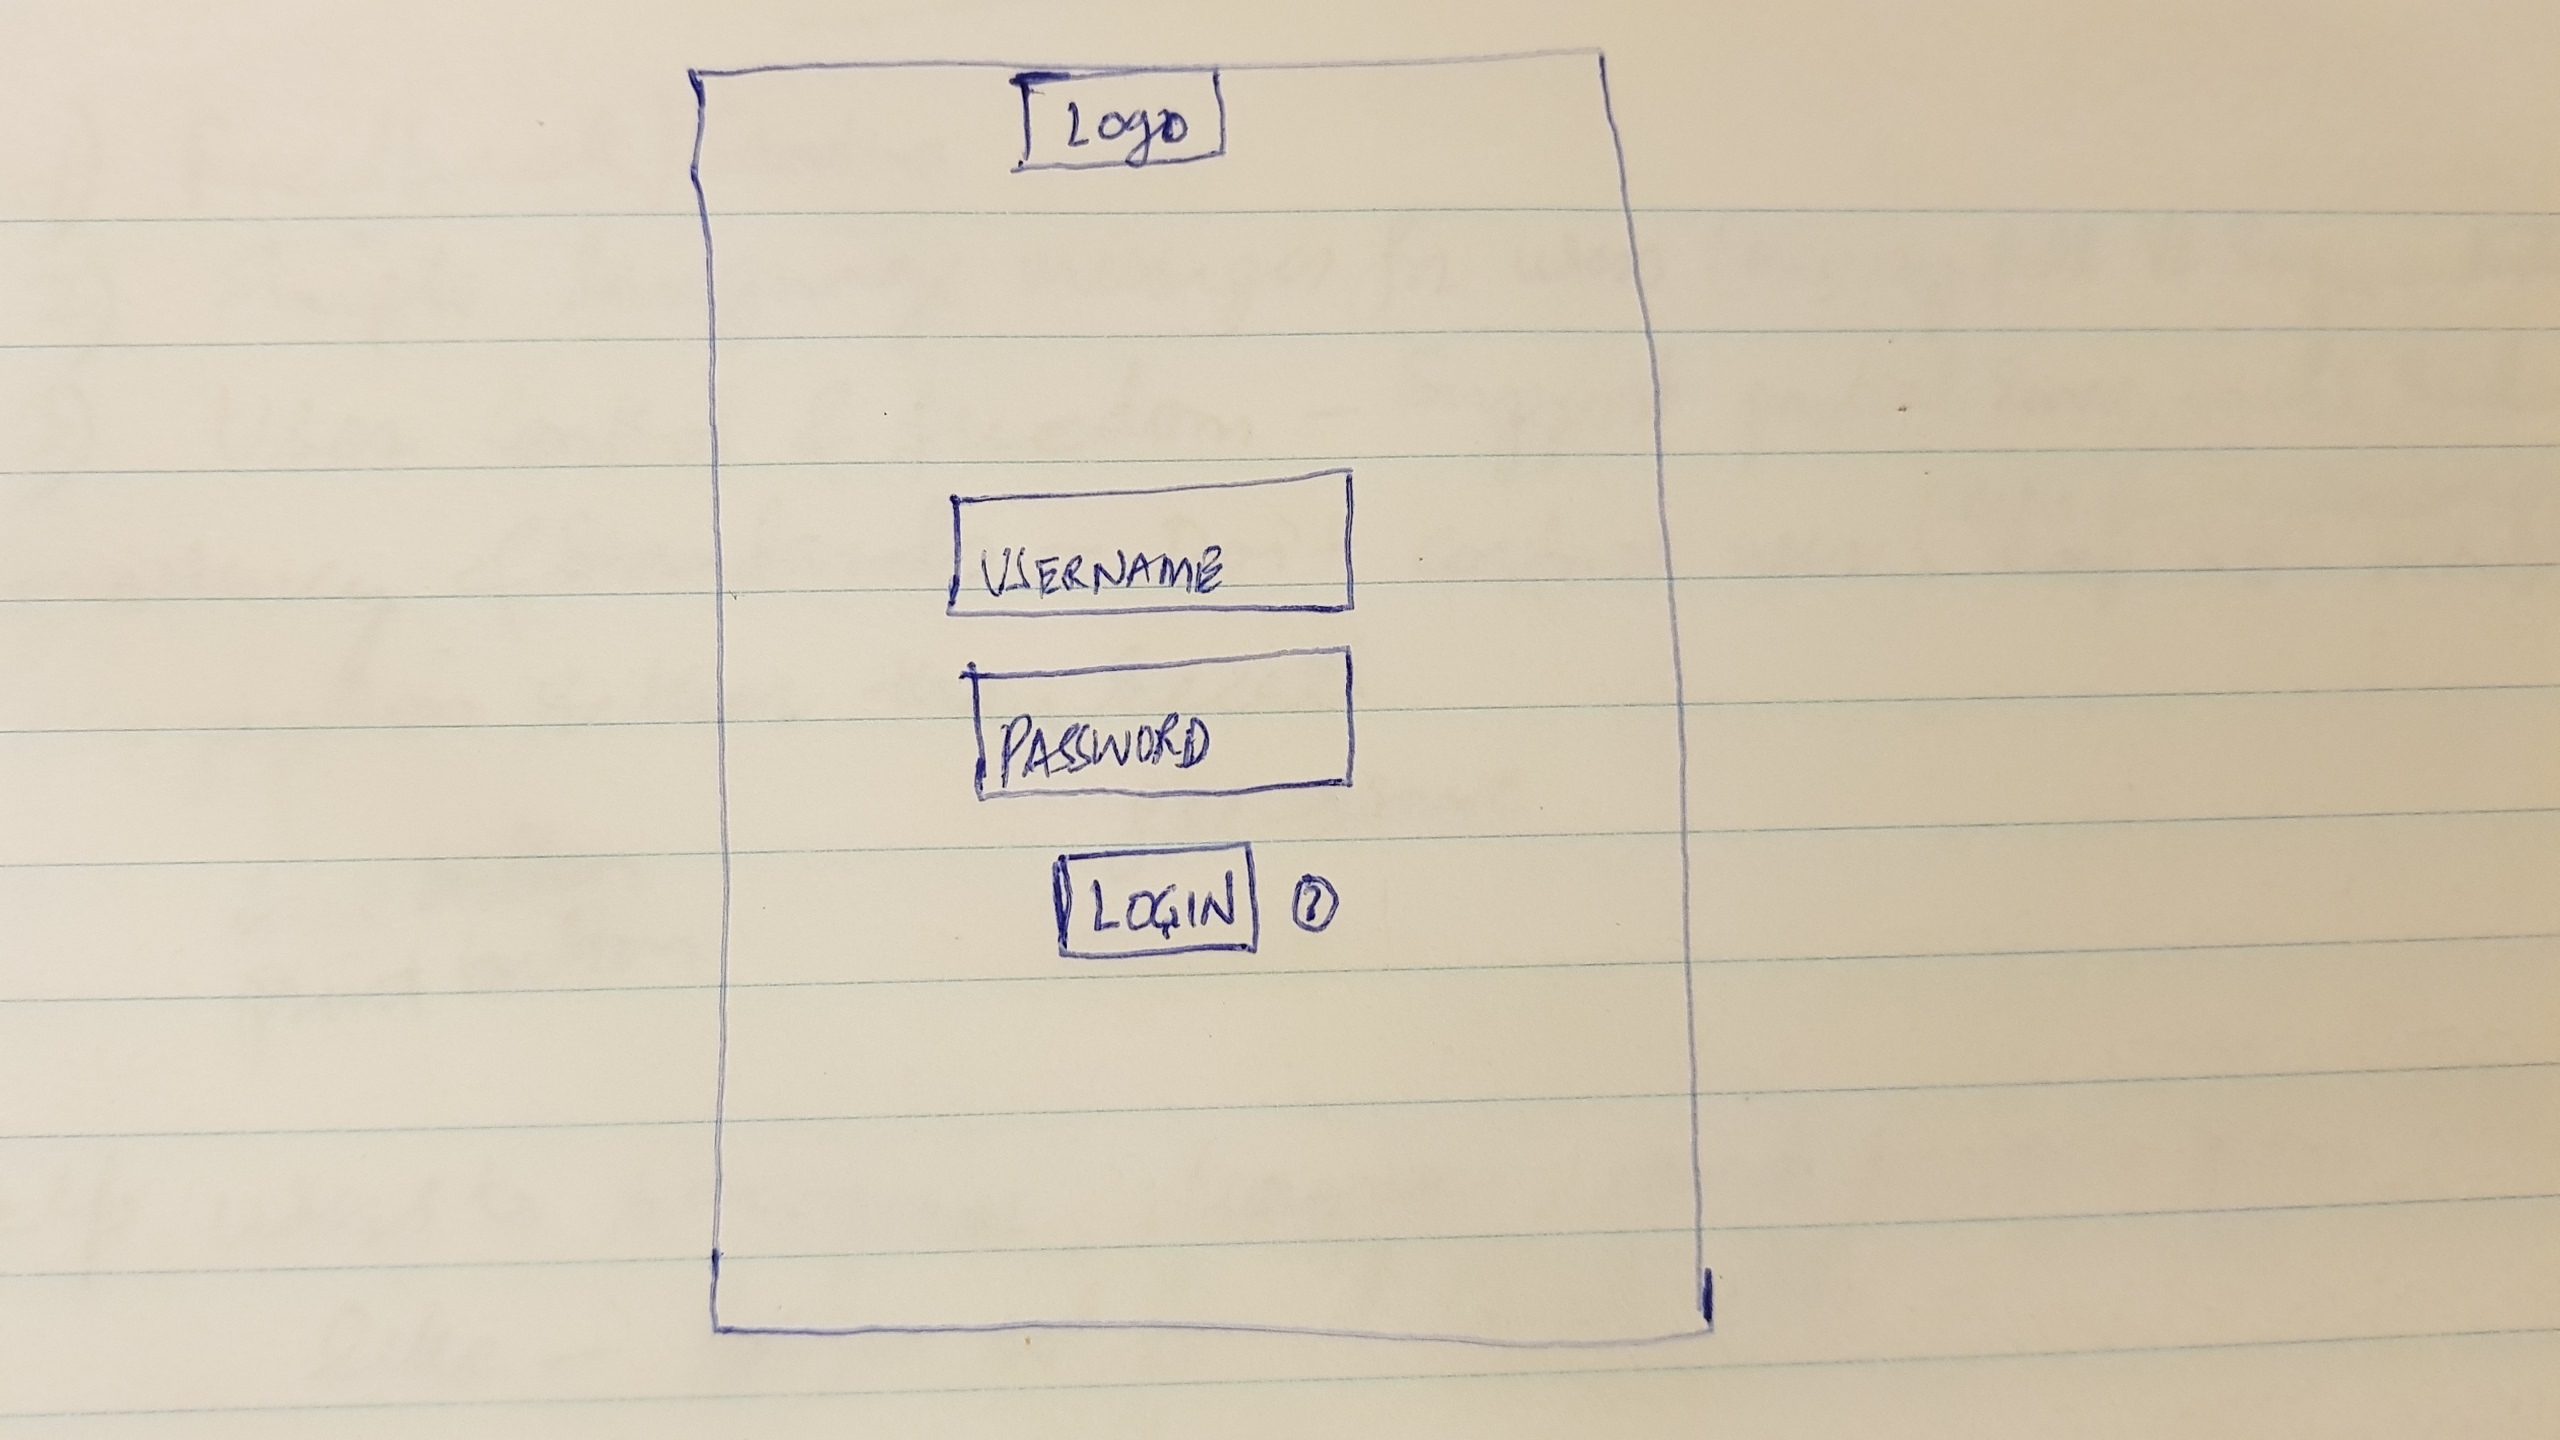 Logo
USERNAME
PASSWORD
LOGIN ?